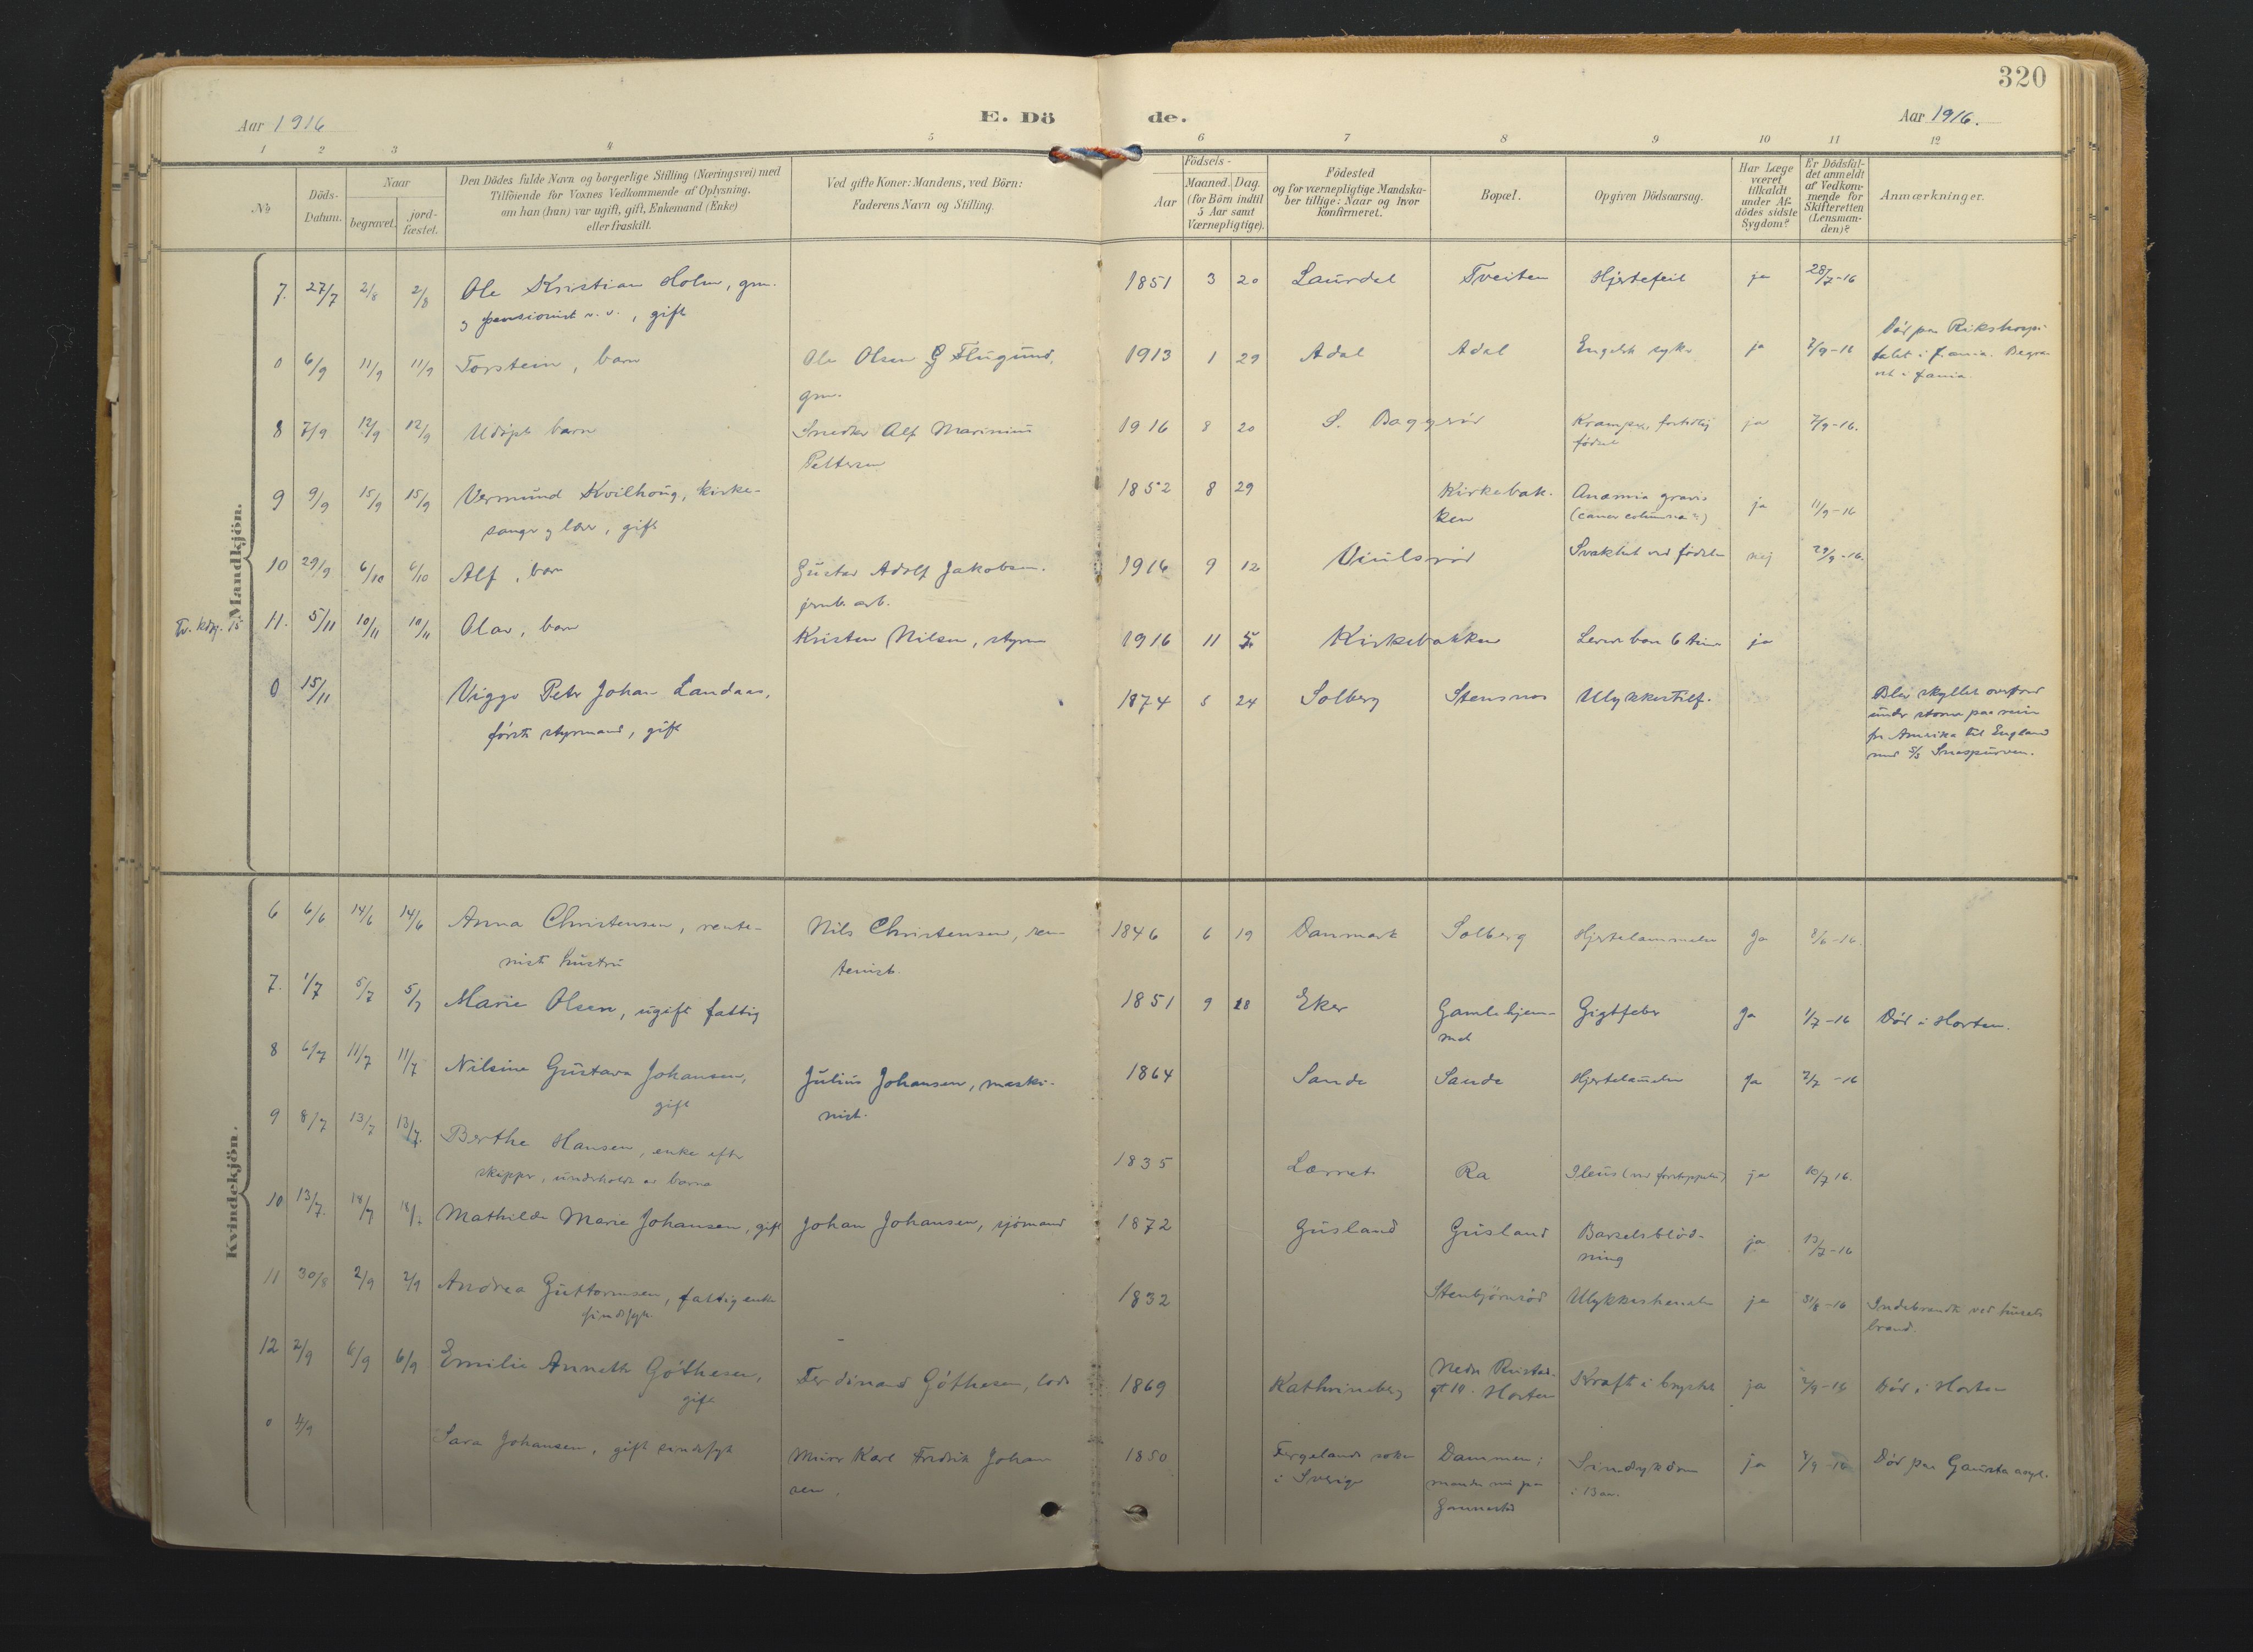 320
Aar 1916
E. Dö de.
Aar 1916.
1 2 3 4 5 6 7 8 9 10 11 12
No
Döds-
Datum.
Naar
begravet.
jord-
fæstet.
Den Dödes fulde Navn og borgerlige Stilling (Næringsvei) med
Tilföiende for Voxnes Vedkommende af Oplysning,
om han (hun) var ugift, gift, Enkemand (Enke)
eller fraskilt.
Ved gifte Koner: Mandens, ved Börn:
Faderens Navn og Stilling.
Födsels-
Aar
Maaned. Dag.
(for Börn indtil
5 Aar samt
Værnepligtige).
Födested
og for værnepligtige Mandska-
ber tillige: Naar og hvor
konfirmeret.
Bopæl.
Opgiven Dödsaarsag.
Har Læge
været
tilkaldt
under Af-
dödes sidste
Sygdom?
Er Dödsfal-
det anmeldt
af Vedkom-
mende for
Skifteretten
(Lensman-
den)?
Anmærkninger.
Mandkjön.
7. 27/7 2/8 2/8 Ole Kristian Holm, gm. 1851 3 20 Laurdal Tveiten Hjertefeil ja 28/7-16
og pensionist, gift
0 6/9 11/9 11/9 Torstein, barn Ole Olsen Flugund, 1913 1 29 Adal Adal Engelsk syke ja 7/9-16 Död paa Rikshospi-
gm. talet i Kania. Begra-
vet i Kania
8 7/9 12/9 12/9 Udöpt barn Snedker Alf Marinius 1916 8 20 S. Baggeröd Kramper, fortidlig ja 7/9-16.
Pettersen födsel
9 9/9 15/9 15/9 Vermund Kvilhoug, kirke- 1852 8 29 Kirkebak- Anæmia gravis ja 11/9-16
sanger og lærer, gift ken
10 29/9 6/10 6/10 Alf, barn Gustav Adolf Jakobsen. 1916 9 12 Viulsröd Svakhet ved födselen nej 29/9-16.
jernb. arb.
15 11. 5/11 10/11 10/11 Olav, barn Kristen Nilsen, styrm 1916 11 5 Kirkebakken Levende barn 6 timer ja
0 15/11 Viggo Peter Johan Landaas, 1874 5 24 Solberg Stensnes Ulykkestilf. Blev skyllet overbord
förste styrmand, gift under storm paa reise
fra Amerika til England
med S/S Snespurven.
Kvindekjön.
6 6/6 14/6 14/6 Anna Christensen, rente- Nils Christensen, ren- 1846 6 19 Danmark Solberg Hjertelammelse Ja 8/6-16.
nist hustru tenist.
7. 1/7 5/7 5/7 Marie Olsen, ugift fattig 1851 9 18 Eker Gamlehjem- Gigtfeber Ja 1/7-16 Död i Horten.
met
8 6/7 11/7 11/7 Nilsine Gustava Johansen, Julius Johansen, maski- 1864 Sande Sande Hjertelammelse Ja 7/7-16
gift nist.
9 8/7 13/7 13/7. Berthe Hansen, enke efter 1835 Ra Ileus ja 10/7 16.
skipper, underholdt av barna
10 13/7. 18/7 18/7. Mathilde Marie Johansen, gift Johan Johansen, sjömand 1872 Gusland Gusland Barselsblöd- ja 13/7-16
ning
11 30/8 2/9 2/9 Andrea Guttormsen, fattig enke 1832 Stenbjörnröd Ulykkeshendelse ja 31/8-16 Indebrændt ved husets
sindsyk brand.
12 2/9 6/9 6/9 Emilie Annette Göthesen, Ferdinand Göthesen, lods 1869 Kathrineberg Nedre Horten Kræft i brystet ja 2/9-16 Död i Horten
gift
0 4/9 Sara Johansen, gift sindssyk Murer Karl Fredrik Johan- 1850 Dammen; Sindssykdom ja 8/9-16 Död paa Gausta asyl.
sen. i Sverige i 13 aar.